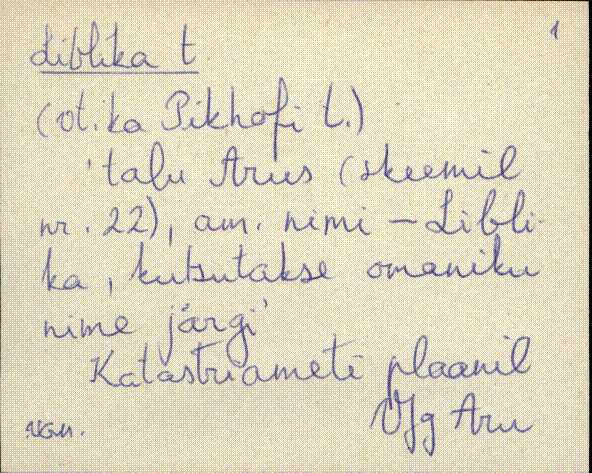 1
Liblika t
(vt. ka Pikhofi t.)
'talu Arus (skeemil
nr. 22), am. nimi – Libli-
ka, kutsutakse omaniku
nime järgi'
Katastriameti plaanil
Aru